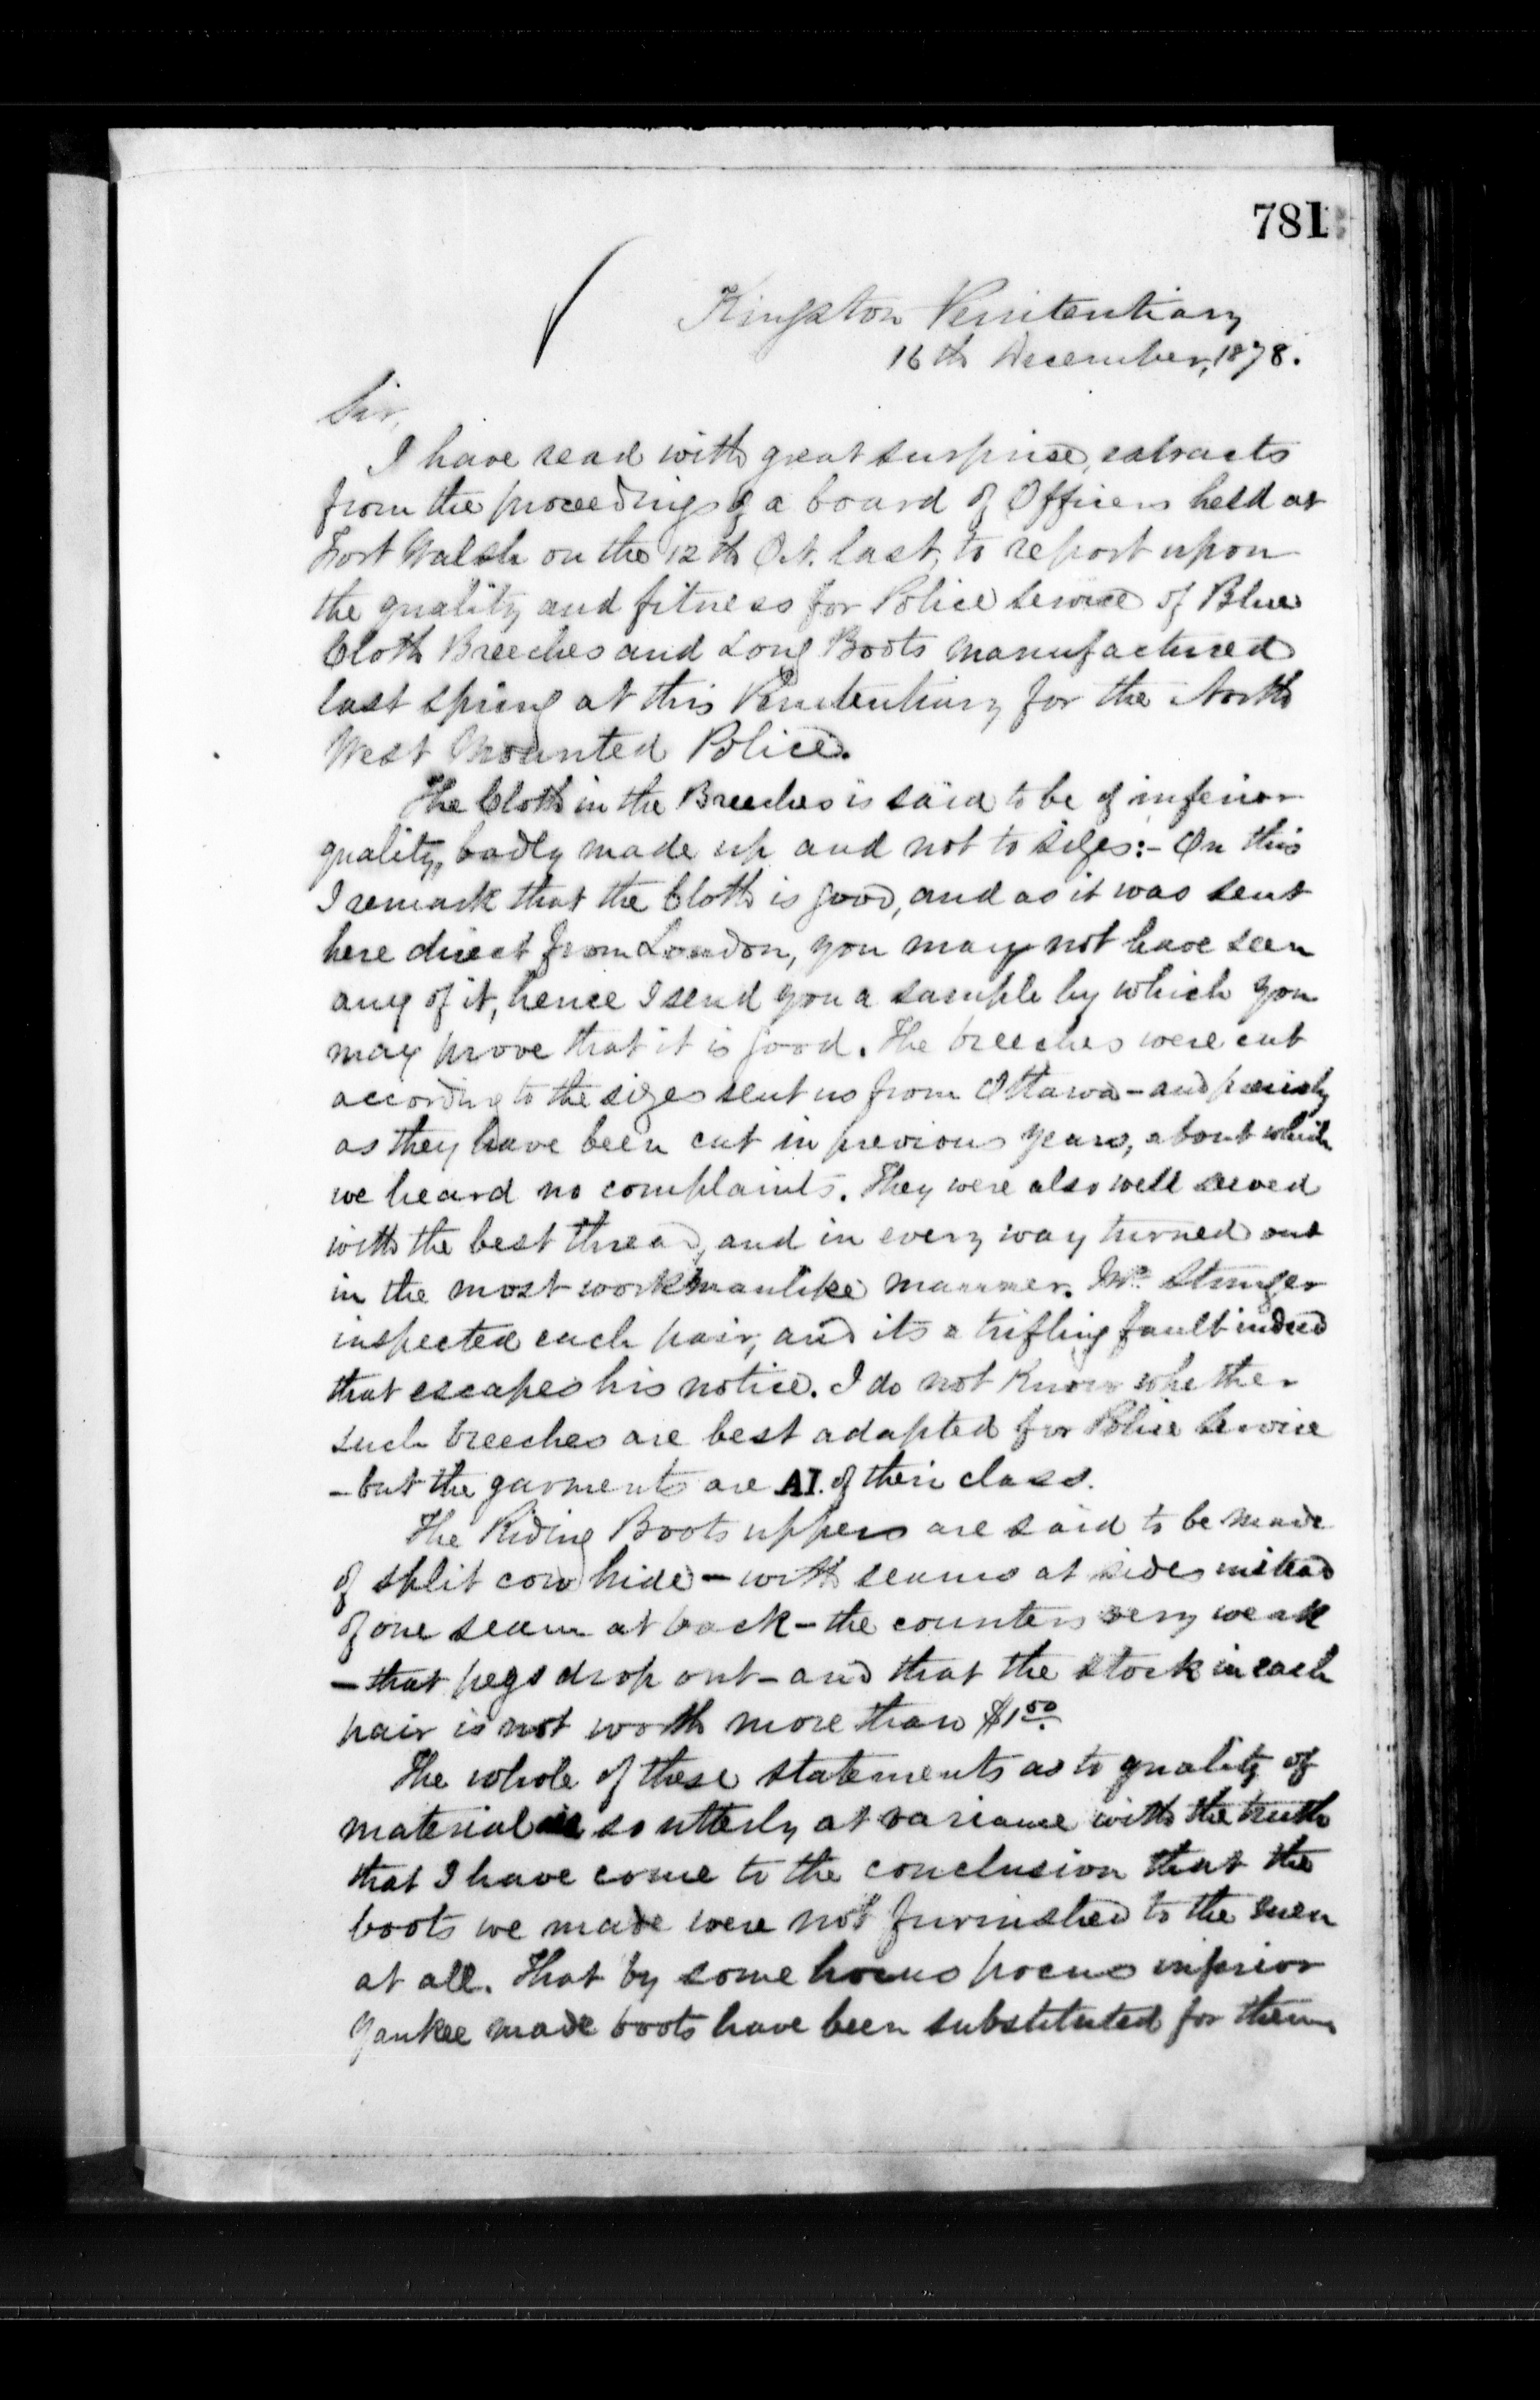 781
Kingston Penitentiary
16th December, 1878.
Sir,
I have read with great surprise, extracts
from the proceedings of a board of Officers held at
Fort Walsh on the 12th Oct. last, to report upon
the quality and fitness for Police service of Blue
Cloth Breeches and Long Boots manufactured
last spring at this Penitentiary for the North
West Mounted Police.
The Cloth in the Breeches is said to be of inferior
quality, badly made up and not to sizes:- On this
I remark that the Cloth is good, and as it was sent
here direct from London, you may not have seen
any of it, hence I send you a sample by which you
may prove that it is good. The breeches were cut
according to the sizes sent us from Ottawa - and precisely
as they have been cut in previous years, about which
we heard no complaints. They were also well sewed
with the best thread, and in every way turned out
in the most workmanlike manner. Mr. Stringer
inspected each pair, and its a trifling fault indeed
that escapes his notice. I do not know whether
such breeches are best adapted for Police Service
- but the garments are A1. of their class.
The Riding Boots uppers are said to be made
of split cow hide - with seams at sides instead
of one seam at back - the counters very weak
- that pegs drop out - and that the stock in each
pair is not worth more than $1.50
The whole of these statements as to quality of
material is so utterly at variance with the truth
that I have come to the conclusion that the
boots we made were not furnished to the men
at all. That by some hocus pocus inferior
Yankee made boots have been substituted for them